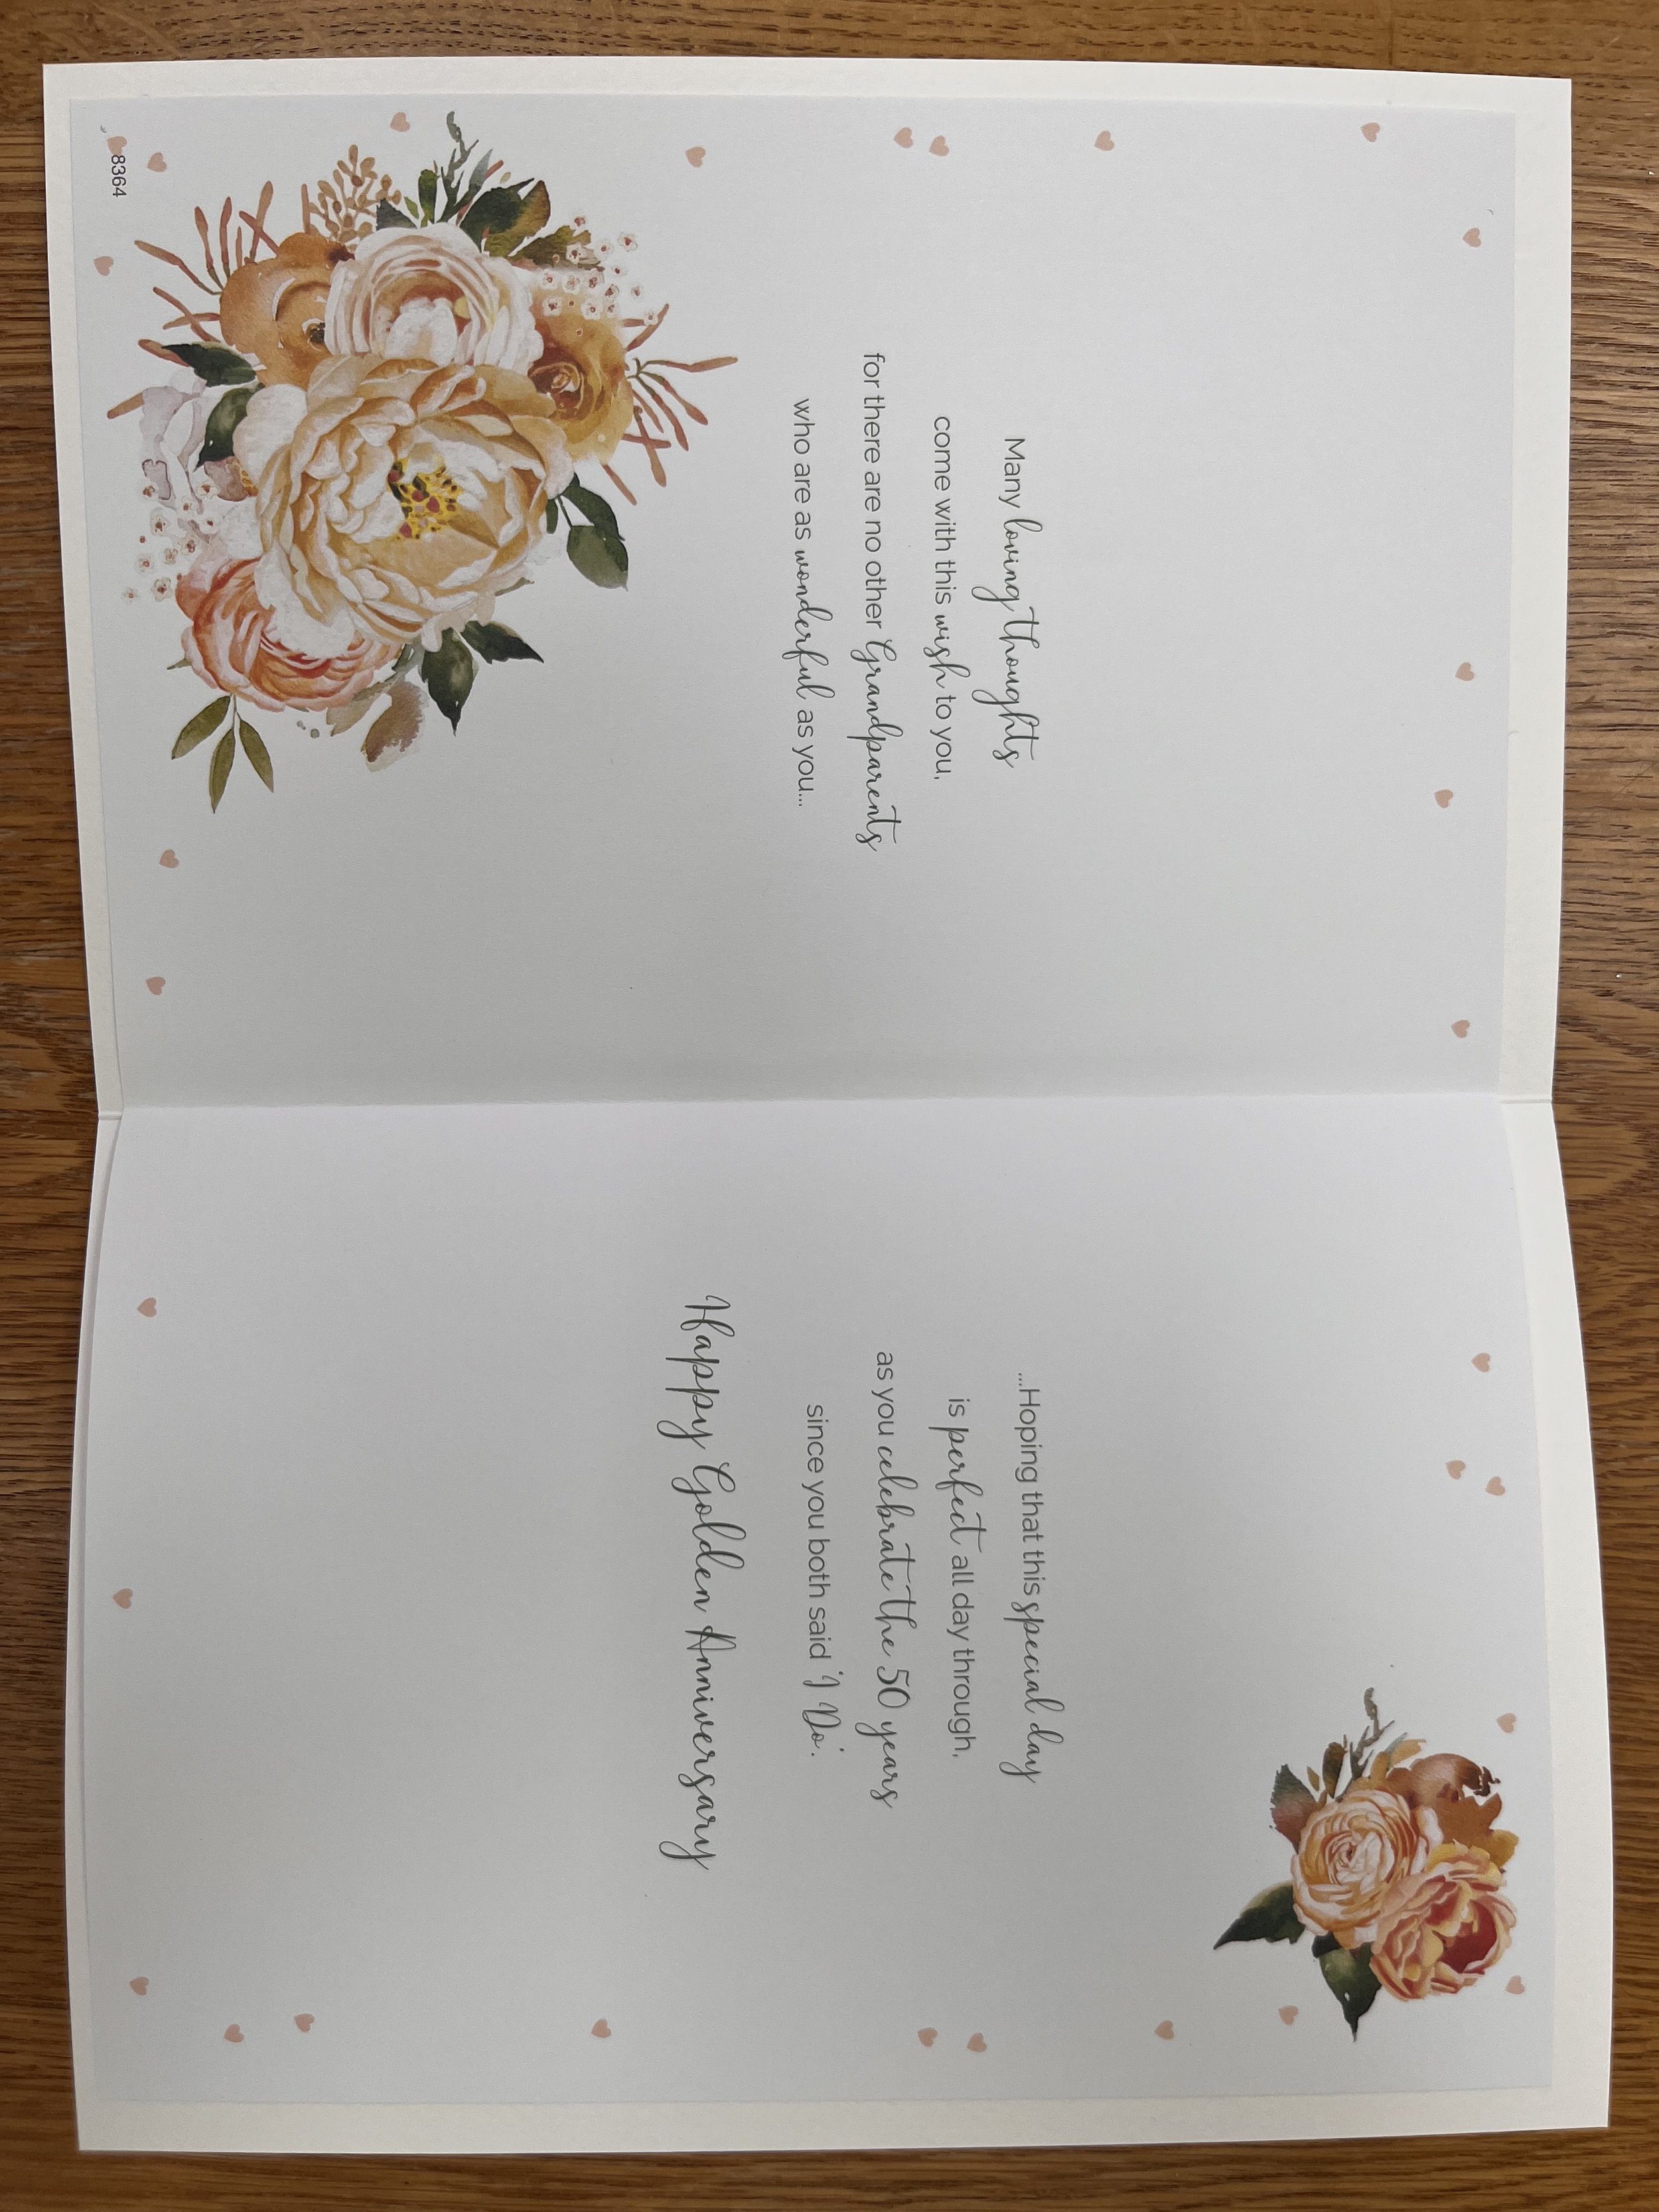 Many loving thoughts
come with this wish to you,
for there are no other Grandparents
who are as wonderful as you...
8364
...Hoping that this special day
is perfect all day through,
as you celebrate the 50 years
since you both said 'I Do'.
Happy Golden Anniversary